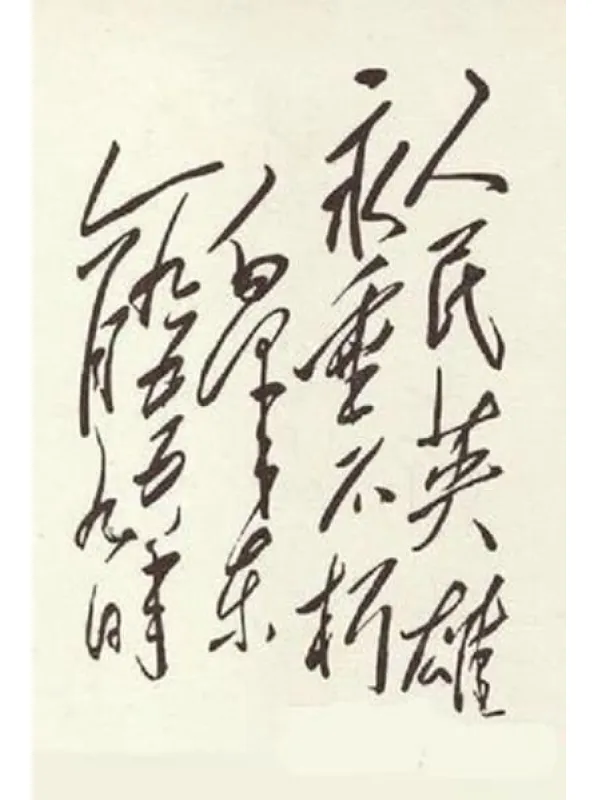 人民英雄
永垂不朽
泽东
一九五五年
月九日